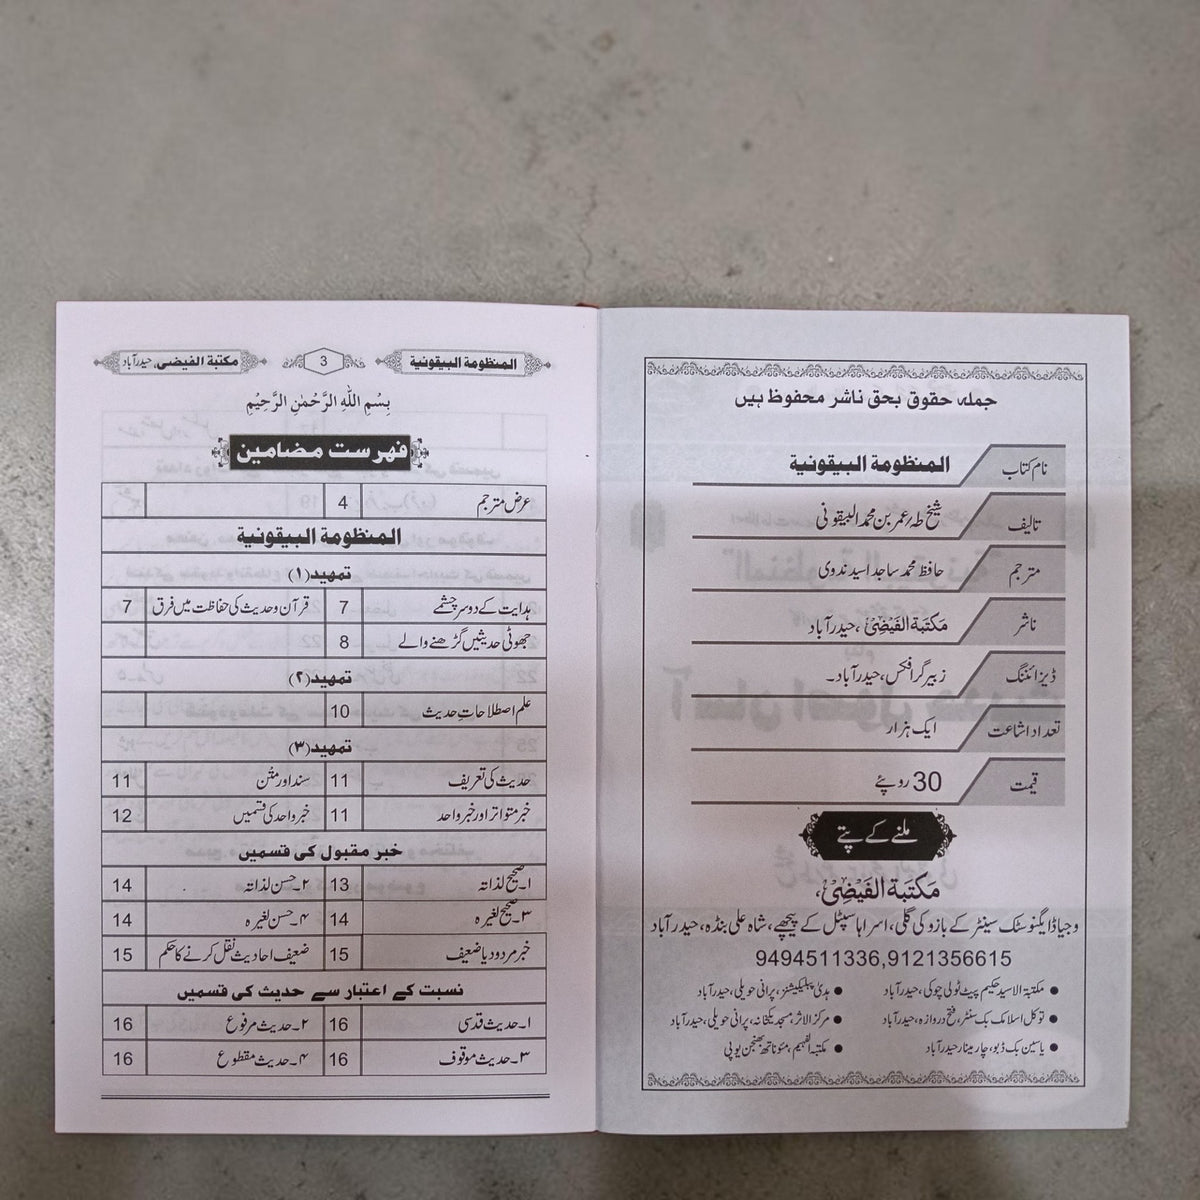 جملہ حقوق بحق ناشر محفوظ ہیں
نام کتاب المنظومة البيقونية
تالیف شیخ طہٰ/عمر بن محمد البیقونی
مترجم حافظ محمد ساجد اسید ندوی
ناشر مَكتَبَة الفَيضِيّ، حیدرآباد
ڈیزائننگ زبیر گرافکس، حیدرآباد۔
تعداد اشاعت ایک ہزار
قیمت 30 روپئے
ملنے کے پتے
مَكتَبَة الفَيضِيّ،
وجیا ڈایگنوسٹک سینٹر کے بازو کی گلی، اسرا ہاسپٹل کے پیچھے، شاہ علی بنڈہ، حیدرآباد
9494511336,9121356615
● مکتبۃ الاسید حکیم پیٹ ٹولی چوکی، حیدرآباد ● ہدیٰ پبلیکیشنز، پرانی حویلی، حیدرآباد
● توکل اسلامک بک سنٹر، فتح دروازہ، حیدرآباد ● مرکز الاثر، مسجد یکخانہ، پرانی حویلی، حیدرآباد
● یاسین بک ڈپو، چار مینار حیدرآباد ● مکتبہ الفہیم، مئوناتھ بھنجن یوپی
المنظومة البيقونية 3 مكتبة الفيضي، حیدرآباد
بِسْمِ اللّٰهِ الرَّحْمٰنِ الرَّحِيْمِ
فہرست مضامین
عرض مترجم 4
المنظومة البيقونية
تمہید (۱)
ہدایت کے دو سرچشمے 7 قرآن و حدیث کی حفاظت میں فرق 7
جھوٹی حدیثیں گڑھنے والے 8
تمہید (۲)
علم اصطلاحاتِ حدیث 10
تمہید (۳)
حدیث کی تعریف 11 سند اور متن 11
خبر متواتر اور خبر واحد 11 خبر واحد کی قسمیں 12
خبر مقبول کی قسمیں
۱۔صحیح لذاتہ 13 ۲۔حسن لذاتہ 14
۳۔صحیح لغیرہ 14 ۴۔حسن لغیرہ 14
خبر مردود یا ضعیف 15 ضعیف احادیث نقل کرنے کا حکم 15
نسبت کے اعتبار سے حدیث کی قسمیں
۱۔حدیث قدسی 16 ۲۔حدیث مرفوع 16
۳۔حدیث موقوف 16 ۴۔حدیث مقطوع 16